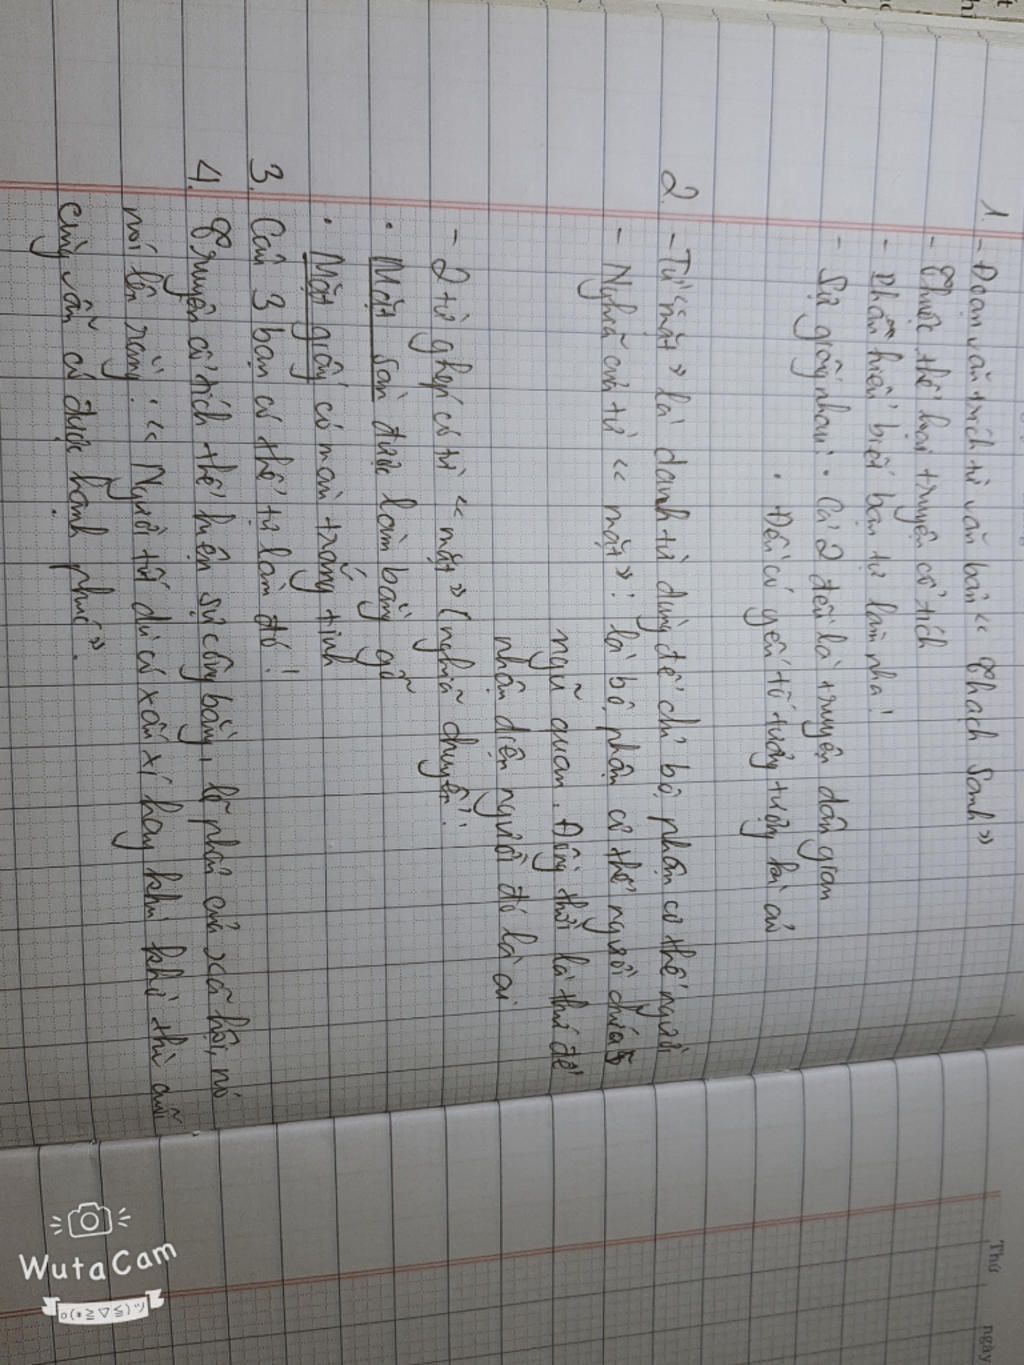 1. - Đoạn văn trích từ văn bản << Thạch Sanh >>
- Thuộc thể loại truyện cổ tích
- Phần hiểu biết bạn tự làm nha!
- Sự giống nhau: • Cả 2 đều là truyện dân gian
• Đều có yếu tố tưởng tượng kì ảo
2. - Từ << mặt >> là danh từ dùng để chỉ bộ phận cơ thể người
- Nghĩa của từ << mặt >>: là bộ phận cơ thể người chứa
ngũ quan. Đồng thời là thứ để
nhận diện người đó là ai
- 2 từ ghép có từ << mặt >> (nghĩa chuyển):
• Mặt sàn được làm bằng gỗ
• Mặt giấy có màu trắng tinh
3. Câu 3 bạn có thể tự làm đó!
4. Truyện cổ tích thể hiện sự công bằng, lẽ phải của xã hội, nó
nói lên rằng: << Người tốt dù có xấu xí hay khù khờ thì cuối
cùng vẫn có được hạnh phúc >>.
Thứ
ngày
WutaCam